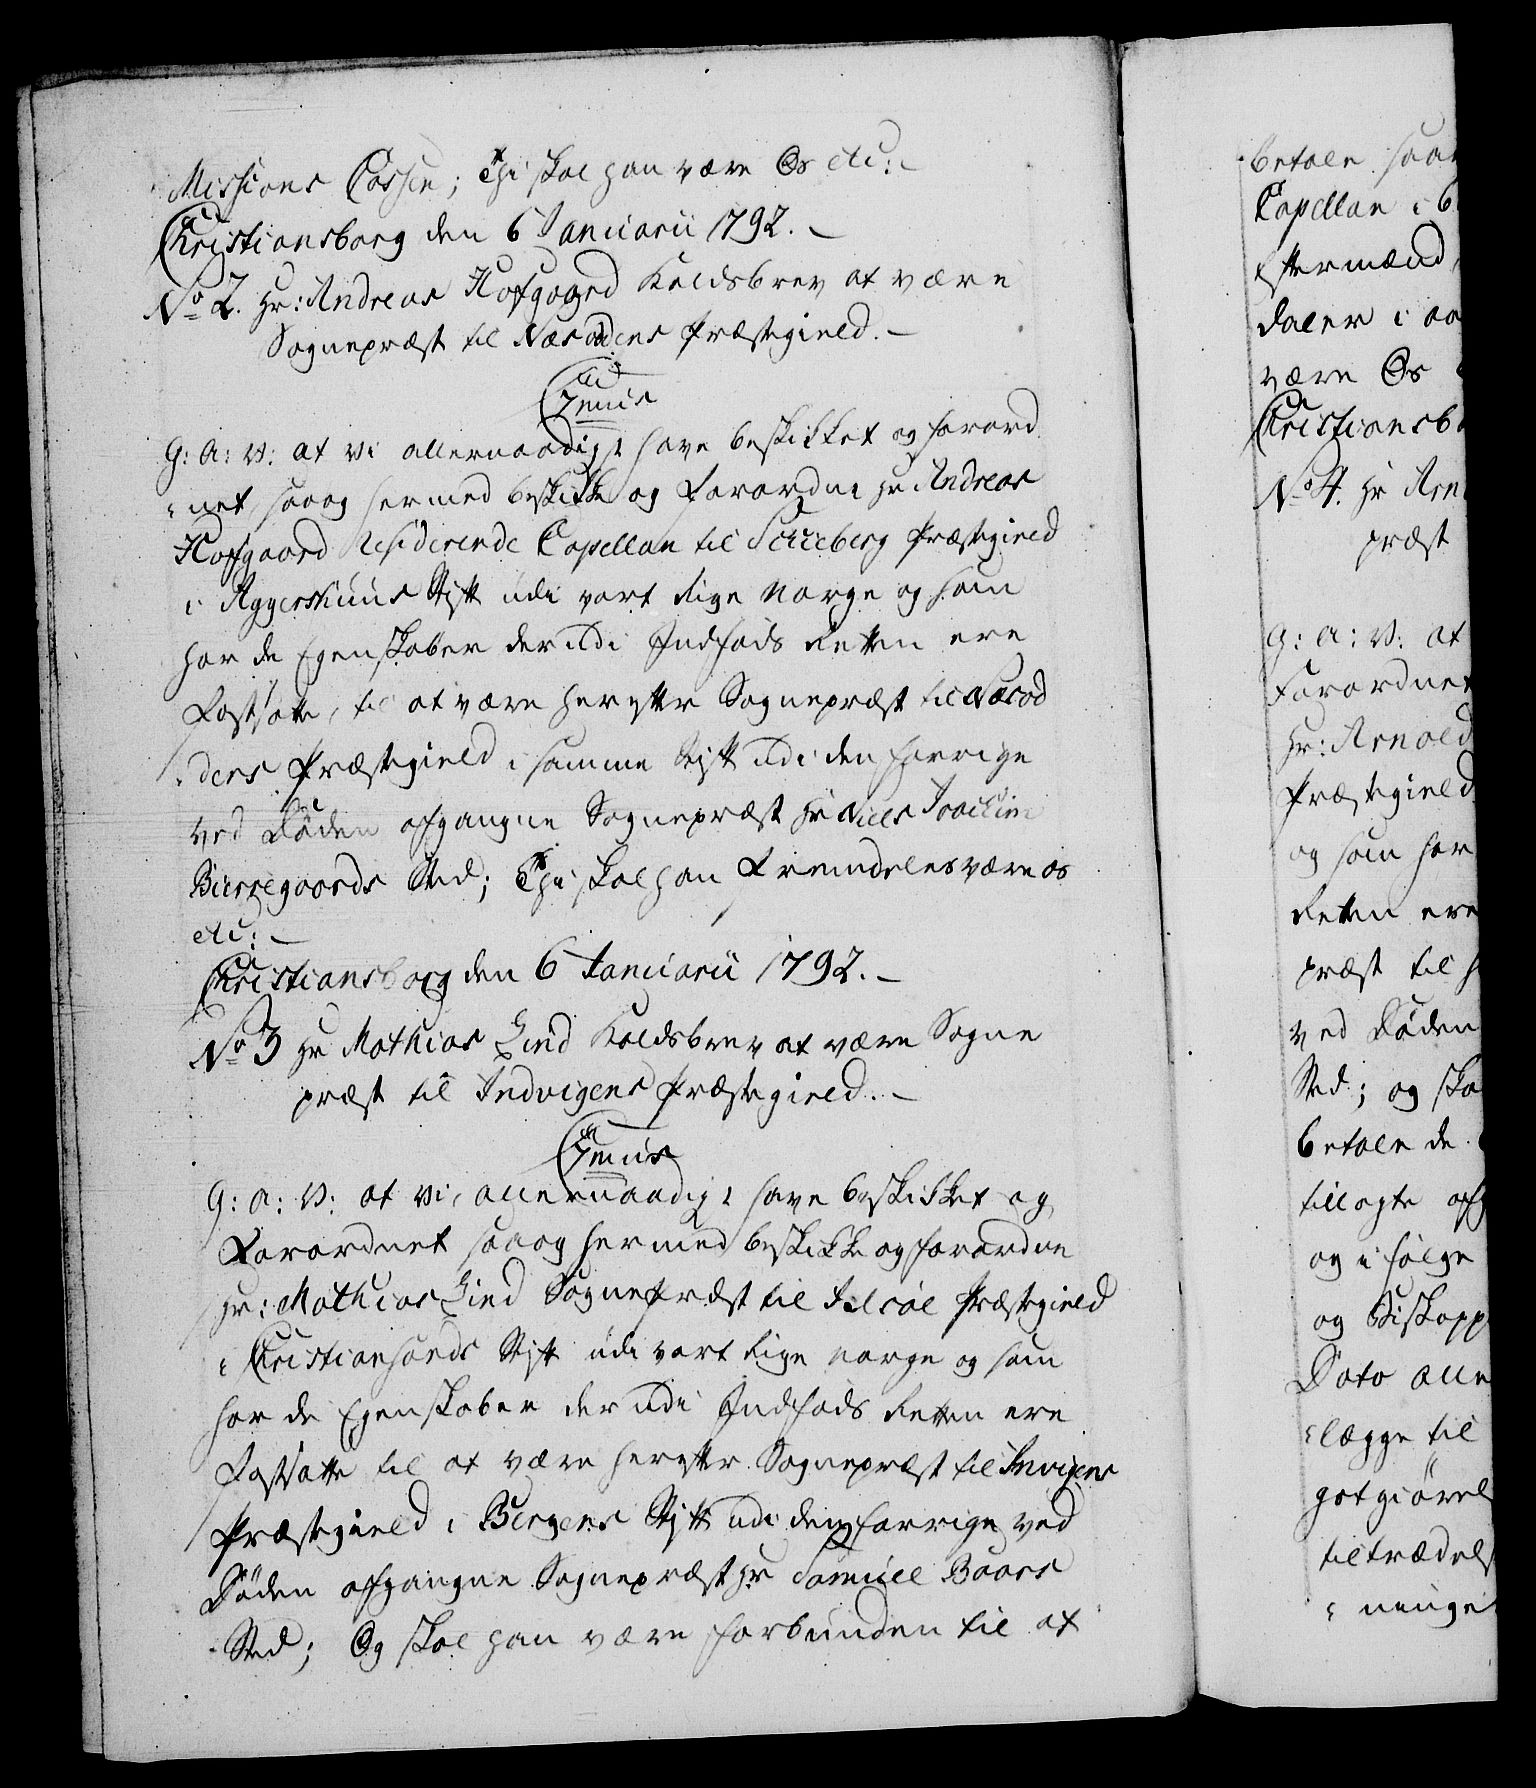 Missions Cassen; Thi skal han være Os etc:
Christiansborg den 6 Januarii 1792.
No 2. Hr: Andreas Hofgaard Kaldsbrev at være
Sognepræst til Næsoddens Præstegield.
C7mus
G: A: V: at vi allernaadigst have beskikket og forord
net, saaog hermed beskikke og Forordne Hr Andreas
Hofgaard residerende Capellan til Præstegield
i Aggershuus Stift udi vort Rige Norge og som
har de Egenskaber der udi Indføds Retten ere
Fastsatte, til at være herefter Sognepræst til Næsod
dens Præstegield i samme Stift udi den forrige
ved Døden afgangne Sognepræst Hr Niels Joachim
Bierregaards Sted; Thi skal han Fremdeles være os
etc:
Christiansborg den 6 Januarii 1792.
No 3 Hr Mathias Lind Kaldsbrev at være Sogne
præst til Indvigens Præstegield.
C7mus
G: A: V: at vi allernaadigst have beskikket og
Forordnet saaog hermed beskikke og forordne
Hr: Mathias Lind Sognepræst til Præstegield
i Christiansands Stift udi vort Rige Norge og som
har de Egenskaber der udi Indføds Retten ere
Fastsatte til at være herefter Sognepræst til Invigens
Præstegield i Bergens Stift udi den forrige ved
Døden afgangne Sognepræst Hr Samuel Baars
Sted; Og skal han være forbunden til at
betale saa
Capellan i
Eftermænd,
daler i
være Os
Christiansb
No 4. Hr Arn
præst
G: A: V: at
Forordnet
Hr: Arnold
Præstegield
og som har
Retten ere
præst til
ved Døden
Sted; og ska
betale de
tillagte af
og i følge
og Biskopp
Dato alle
lægge til
godtgiørels
tiltrædels
ninge